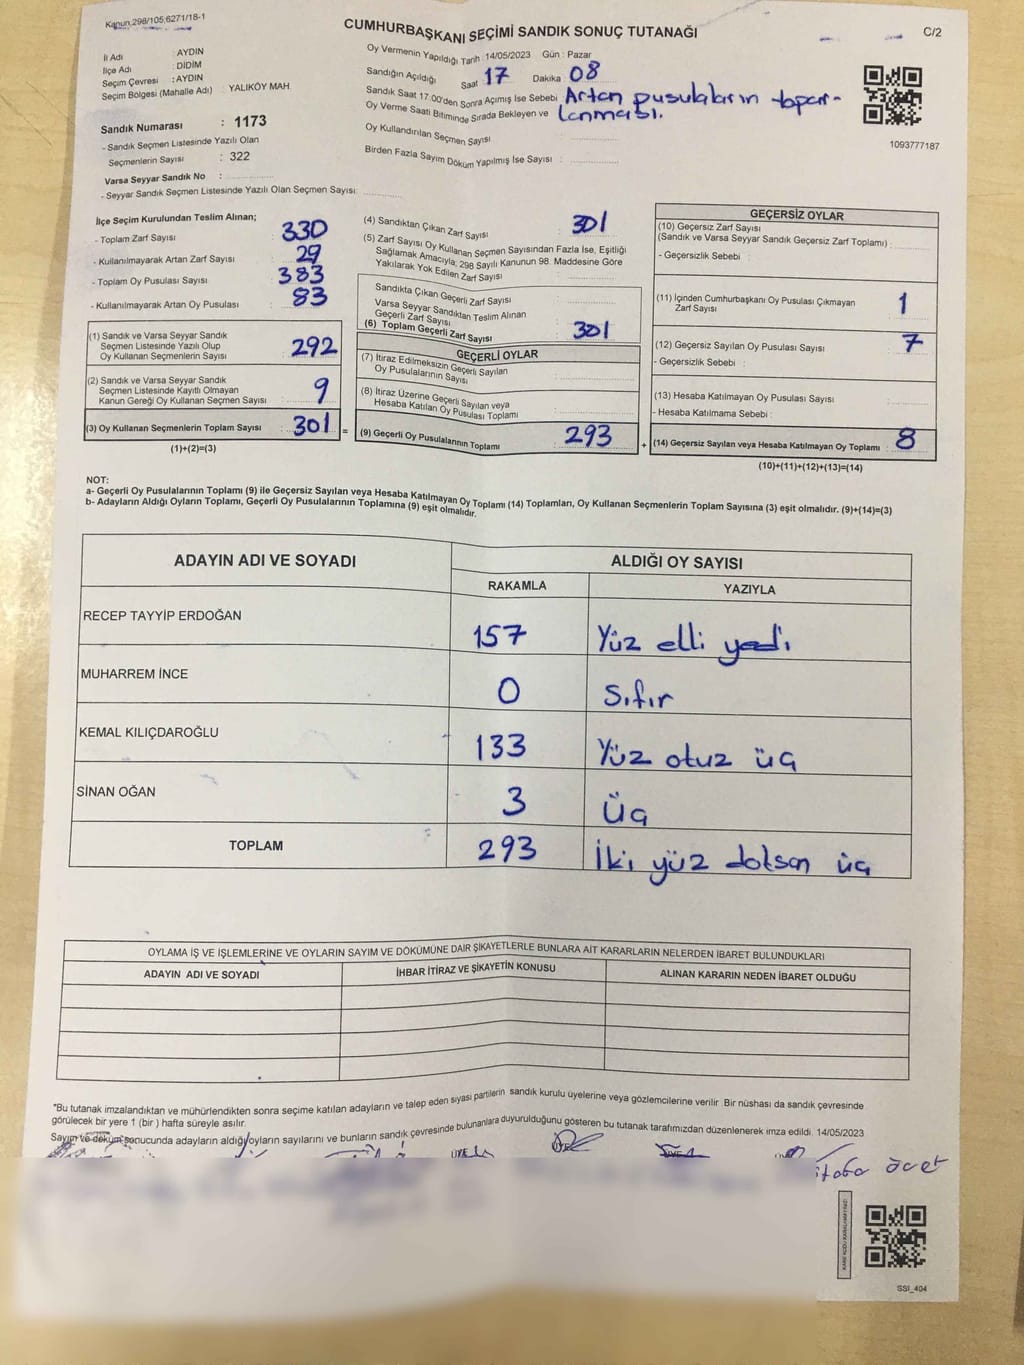 Kanun.298/105;6271/18-1
CUMHURBAŞKANI SEÇİMİ SANDIK SONUÇ TUTANAĞI
C/2
İl Adı : AYDIN
İlçe Adı : DİDİM
Seçim Çevresi : AYDIN
Seçim Bölgesi (Mahalle Adı) : YALIKÖY MAH.
Oy Vermenin Yapıldığı Tarih : 14/05/2023 Gün : Pazar
Sandığın Açıldığı Saat 17 Dakika 08
Sandık Saat 17:00'den Sonra Açımış İse Sebebi Artan pusulaların topar-
Oy Verme Saati Bitiminde Sırada Bekleyen ve lanması.
Oy Kullandırılan Seçmen Sayısı :
Birden Fazla Sayım Döküm Yapılmış İse Sayısı :
1093777187
Sandık Numarası : 1173
- Sandık Seçmen Listesinde Yazılı Olan
Seçmenlerin Sayısı : 322
Varsa Seyyar Sandık No :
- Seyyar Sandık Seçmen Listesinde Yazılı Olan Seçmen Sayısı:
İlçe Seçim Kurulundan Teslim Alınan;
- Toplam Zarf Sayısı 330
- Kullanılmayarak Artan Zarf Sayısı 29
- Toplam Oy Pusulası Sayısı 383
- Kullanılmayarak Artan Oy Pusulası 83
(1) Sandık ve Varsa Seyyar Sandık
Seçmen Listesinde Yazılı Olup
Oy Kullanan Seçmenlerin Sayısı 292
(2) Sandık ve Varsa Seyyar Sandık
Seçmen Listesinde Kayıtlı Olmayan
Kanun Gereği Oy Kullanan Seçmen Sayısı 9
(3) Oy Kullanan Seçmenlerin Toplam Sayısı : 301 =
(1)+(2)=(3)
(4) Sandıktan Çıkan Zarf Sayısı 301
(5) Zarf Sayısı Oy Kullanan Seçmen Sayısından Fazla İse, Eşitliği
Sağlamak Amacıyla; 298 Sayılı Kanunun 98. Maddesine Göre
Yakılarak Yok Edilen Zarf Sayısı
Sandıkta Çıkan Geçerli Zarf Sayısı
Varsa Seyyar Sandıktan Teslim Alınan
Geçerli Zarf Sayısı
(6) Toplam Geçerli Zarf Sayısı 301
GEÇERLİ OYLAR
(7) İtiraz Edilmeksizin Geçerli Sayılan
Oy Pusulalarının Sayısı
(8) İtiraz Üzerine Geçerli Sayılan veya
Hesaba Katılan Oy Pusulası Toplamı
(9) Geçerli Oy Pusulalarının Toplamı 293 +
GEÇERSİZ OYLAR
(10) Geçersiz Zarf Sayısı
(Sandık ve Varsa Seyyar Sandık Geçersiz Zarf Toplamı) :
- Geçersizlik Sebebi :
(11) İçinden Cumhurbaşkanı Oy Pusulası Çıkmayan
Zarf Sayısı 1
(12) Geçersiz Sayılan Oy Pusulası Sayısı 7
- Geçersizlik Sebebi :
(13) Hesaba Katılmayan Oy Pusulası Sayısı
- Hesaba Katılmama Sebebi :
(14) Geçersiz Sayılan veya Hesaba Katılmayan Oy Toplamı : 8
(10)+(11)+(12)+(13)=(14)
NOT:
a- Geçerli Oy Pusulalarının Toplamı (9) ile Geçersiz Sayılan veya Hesaba Katılmayan Oy Toplamı (14) Toplamları, Oy Kullanan Seçmenlerin Toplam Sayısına (3) eşit olmalıdır. (9)+(14)=(3)
b- Adayların Aldığı Oyların Toplamı, Geçerli Oy Pusulalarının Toplamına (9) eşit olmalıdır.
ADAYIN ADI VE SOYADI ALDIĞI OY SAYISI
RAKAMLA YAZIYLA
RECEP TAYYİP ERDOĞAN 157 Yüz elli yedi
MUHARREM İNCE 0 Sıfır
KEMAL KILIÇDAROĞLU 133 Yüz otuz üç
SİNAN OĞAN 3 Üç
TOPLAM 293 İki yüz doksan üç
OYLAMA İŞ VE İŞLEMLERİNE VE OYLARIN SAYIM VE DÖKÜMÜNE DAİR ŞİKAYETLERLE BUNLARA AİT KARARLARIN NELERDEN İBARET BULUNDUKLARI
ADAYIN ADI VE SOYADI İHBAR İTİRAZ VE ŞİKAYETİN KONUSU ALINAN KARARIN NEDEN İBARET OLDUĞU
"Bu tutanak imzalandıktan ve mühürlendikten sonra seçime katılan adayların ve talep eden siyasi partilerin sandık kurulu üyelerine veya gözlemcilerine verilir. Bir nüshası da sandık çevresinde
görülecek bir yere 1 (bir) hafta süreyle asılır.
Sayım ve döküm sonucunda adayların aldığı oyların sayılarını ve bunların sandık çevresinde bulunanlara duyurulduğunu gösteren bu tutanak tarafımızdan düzenlenerek imza edildi. 14/05/2023
SSI_404